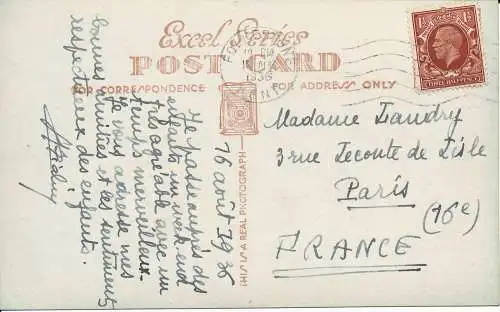 Excel Series
POST CARD
FOR CORRESPONDENCE
FOR ADDRESS ONLY
THIS IS A REAL PHOTOGRAPH
1½
1½
1936
KENT
16 août 1936
Je passe auprès des
enfants un week end
très agréable avec un
temps merveilleux.
Je vous adresse mes
bonnes amitiés et les sentiments
respectueux des enfants.
Madame Landry
3 rue Leconte de Lisle
Paris
(16e)
FRANCE